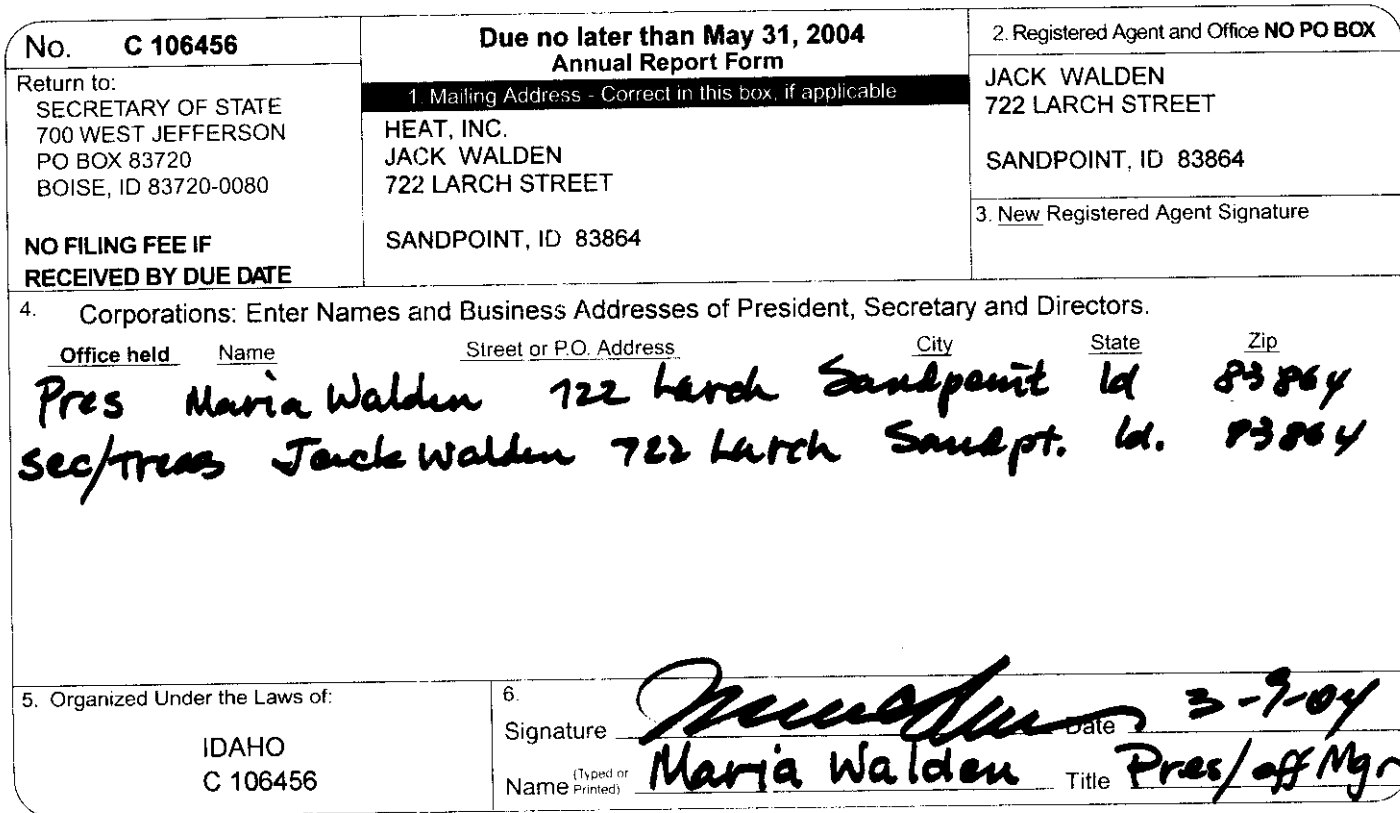 No. C 106456
Return to:
SECRETARY OF STATE
700 WEST JEFFERSON
PO BOX 83720
BOISE, ID 83720-0080
NO FILING FEE IF
RECEIVED BY DUE DATE
Due no later than May 31, 2004
Annual Report Form
1. Mailing Address - Correct in this box, if applicable
HEAT, INC.
JACK WALDEN
722 LARCH STREET
SANDPOINT, ID 83864
2. Registered Agent and Office NO PO BOX
JACK WALDEN
722 LARCH STREET
SANDPOINT, ID 83864
3. New Registered Agent Signature
4. Corporations: Enter Names and Business Addresses of President, Secretary and Directors.
Office held Name Street or P.O. Address City State Zip
Pres Maria Walden 722 Larch Sandpoint Id 83864
Sec/Treas Jack Walden 722 Larch Sandpt. Id. 83864
5. Organized Under the Laws of:
IDAHO
C 106456
6.
Signature Date 3-9-04
Name (Typed or Printed) Maria Walden Title Pres/off Mgr